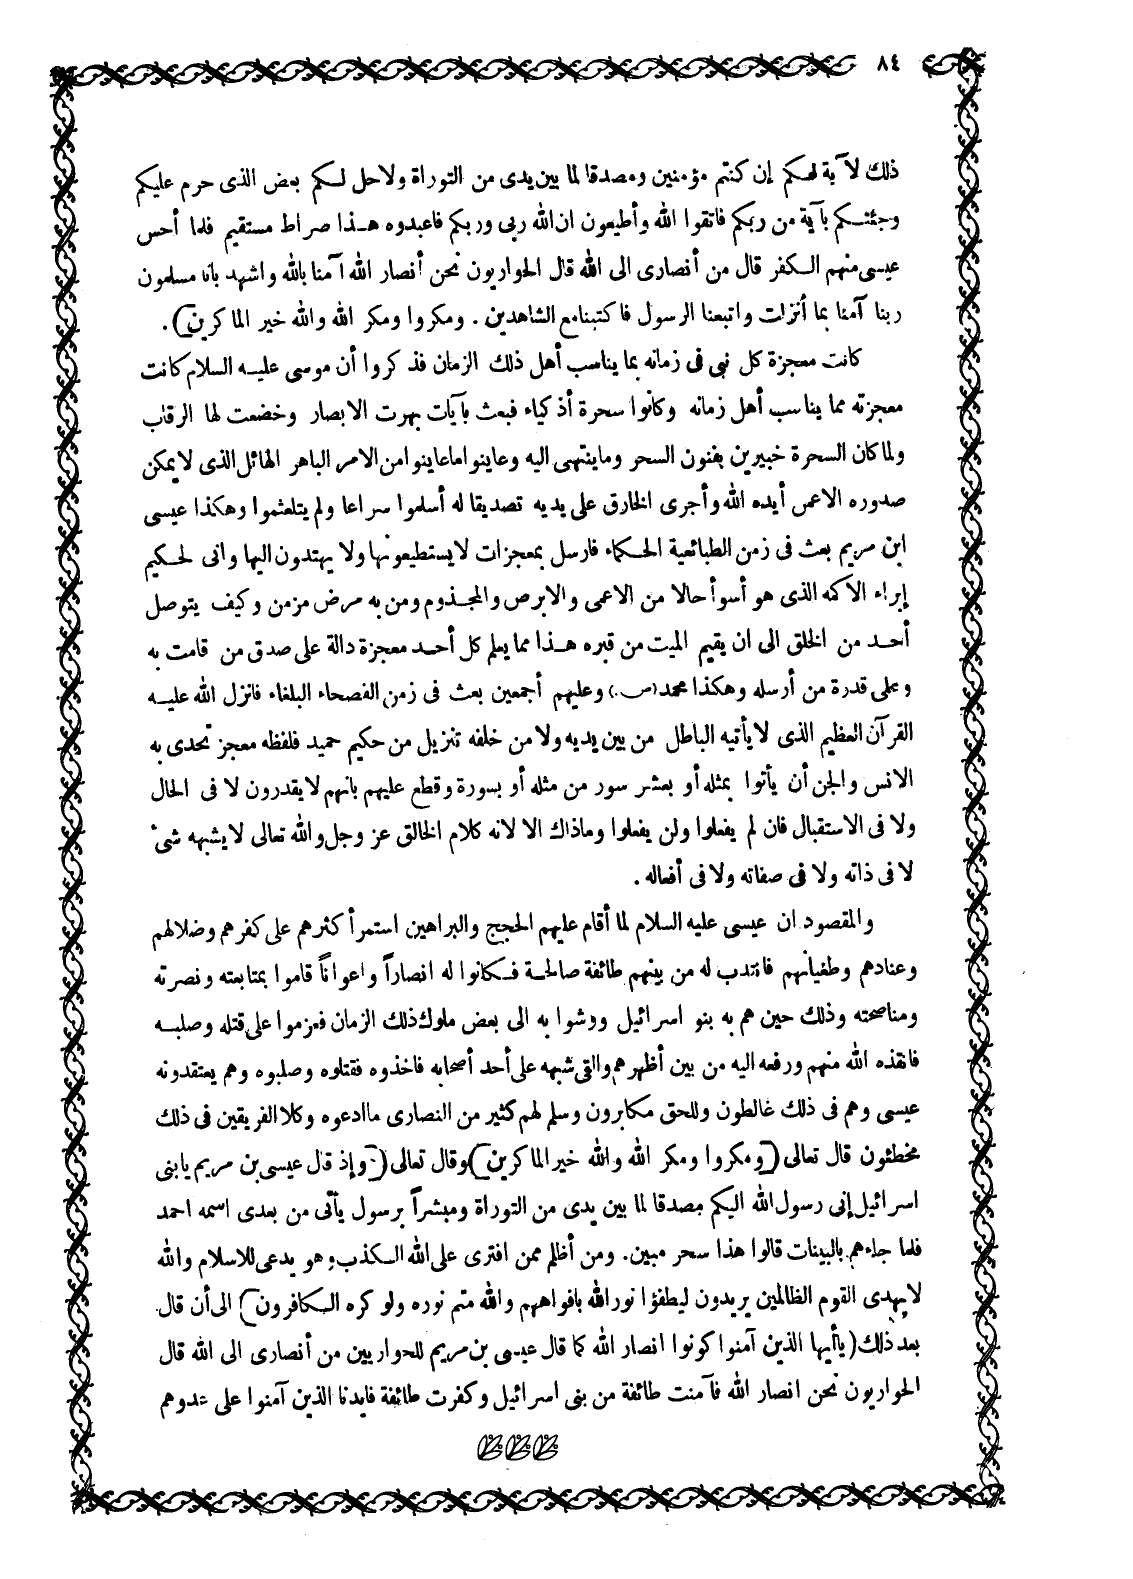 ٨٤
ذلك لآية لكم إن كنتم مؤمنين ومصدقا لما بين يدى من التوراة ولاحل لكم بعض الذى حرم عليكم
وجئتكم بآية من ربكم فاتقوا الله وأطيعون ان الله ربى وربكم فاعبدوه هذا صراط مستقيم فلما أحس
عيسى منهم الكفر قال من أنصارى الى الله قال الحواريون نحن أنصار الله آمنا بالله واشهد بانا مسلمون
ربنا آمنا بما أنزلت واتبعنا الرسول فاكتبنا مع الشاهدين . ومكروا ومكر الله والله خير الماكرين) .
كانت معجزة كل نبى فى زمانه بما يناسب أهل ذلك الزمان فذكروا أن موسى عليه السلام كانت
معجزته مما يناسب أهل زمانه وكانوا سحرة أذكياء فبعث بآيات بهرت الابصار وخضعت لها الرقاب
ولما كان السحرة خبيرين بفنون السحر وما ينتهى اليه وعاينوا ما عاينوا من الامر الباهر الهائل الذى لا يمكن
صدوره الا عمن أيده الله وأجرى الخارق على يديه تصديقا له أسلموا سراعا ولم يتلعثموا وهكذا عيسى
ابن مريم بعث فى زمن الطبائعية الحكماء فارسل بمعجزات لا يستطيعونها ولا يهتدون اليها وانى لحكيم
إبراء الاكمه الذى هو أسوأ حالا من الاعمى والابرص والمجذوم ومن به مرض مزمن وكيف يتوصل
أحد من الخلق الى ان يقيم الميت من قبره هذا مما يعلم كل أحد معجزة دالة على صدق من قامت به
وعلى قدرة من أرسله وهكذا محمد (ص.) وعليهم أجمعين بعث فى زمن الفصحاء البلغاء فانزل الله عليه
القرآن العظيم الذى لا يأتيه الباطل من بين يديه ولا من خلفه تنزيل من حكيم حميد فلفظه معجز تحدى به
الانس والجن أن يأتوا بمثله أو بعشر سور من مثله أو بسورة وقطع عليهم بانهم لا يقدرون لا فى الحال
ولا فى الاستقبال فان لم يفعلوا ولن يفعلوا وماذاك الا لانه كلام الخالق عز وجل والله تعالى لا يشبهه شئ
لا فى ذاته ولا فى صفاته ولا فى أفعاله .
والمقصود ان عيسى عليه السلام لما أقام عليهم الحجج والبراهين استمر أكثرهم على كفرهم وضلالهم
وعنادهم وطغيانهم فانتدب له من بينهم طائفة صالحة فكانوا له انصاراً واعواناً قاموا بمتابعته ونصرته
ومناصحته وذلك حين هم به بنو اسرائيل ووشوا به الى بعض ملوك ذلك الزمان فعزموا على قتله وصلبه
فانقذه الله منهم ورفعه اليه من بين أظهرهم والقى شبهه على أحد أصحابه فاخذوه فقتلوه وصلبوه وهم يعتقدونه
عيسى وهم فى ذلك غالطون وللحق مكابرون وسلم لهم كثير من النصارى ما ادعوه وكلا الفريقين فى ذلك
مخطئون قال تعالى (ومكروا ومكر الله والله خير الماكرين) وقال تعالى (وإذ قال عيسى بن مريم يا بنى
اسرائيل إنى رسول الله اليكم مصدقا لما بين يدى من التوراة ومبشراً برسول يأتى من بعدى اسمه احمد
فلما جاءهم بالبينات قالوا هذا سحر مبين. ومن أظلم ممن افترى على الله الكذب وهو يدعى للاسلام والله
لا يهدى القوم الظالمين يريدون ليطفؤا نور الله بافواههم والله متم نوره ولو كره الكافرون) الى أن قال
بعد ذلك (يأيها الذين آمنوا كونوا انصار الله كما قال عيسى بن مريم للحواريين من أنصارى الى الله قال
الحواريون نحن انصار الله فآمنت طائفة من بنى اسرائيل وكفرت طائفة فايدنا الذين آمنوا على عدوهم